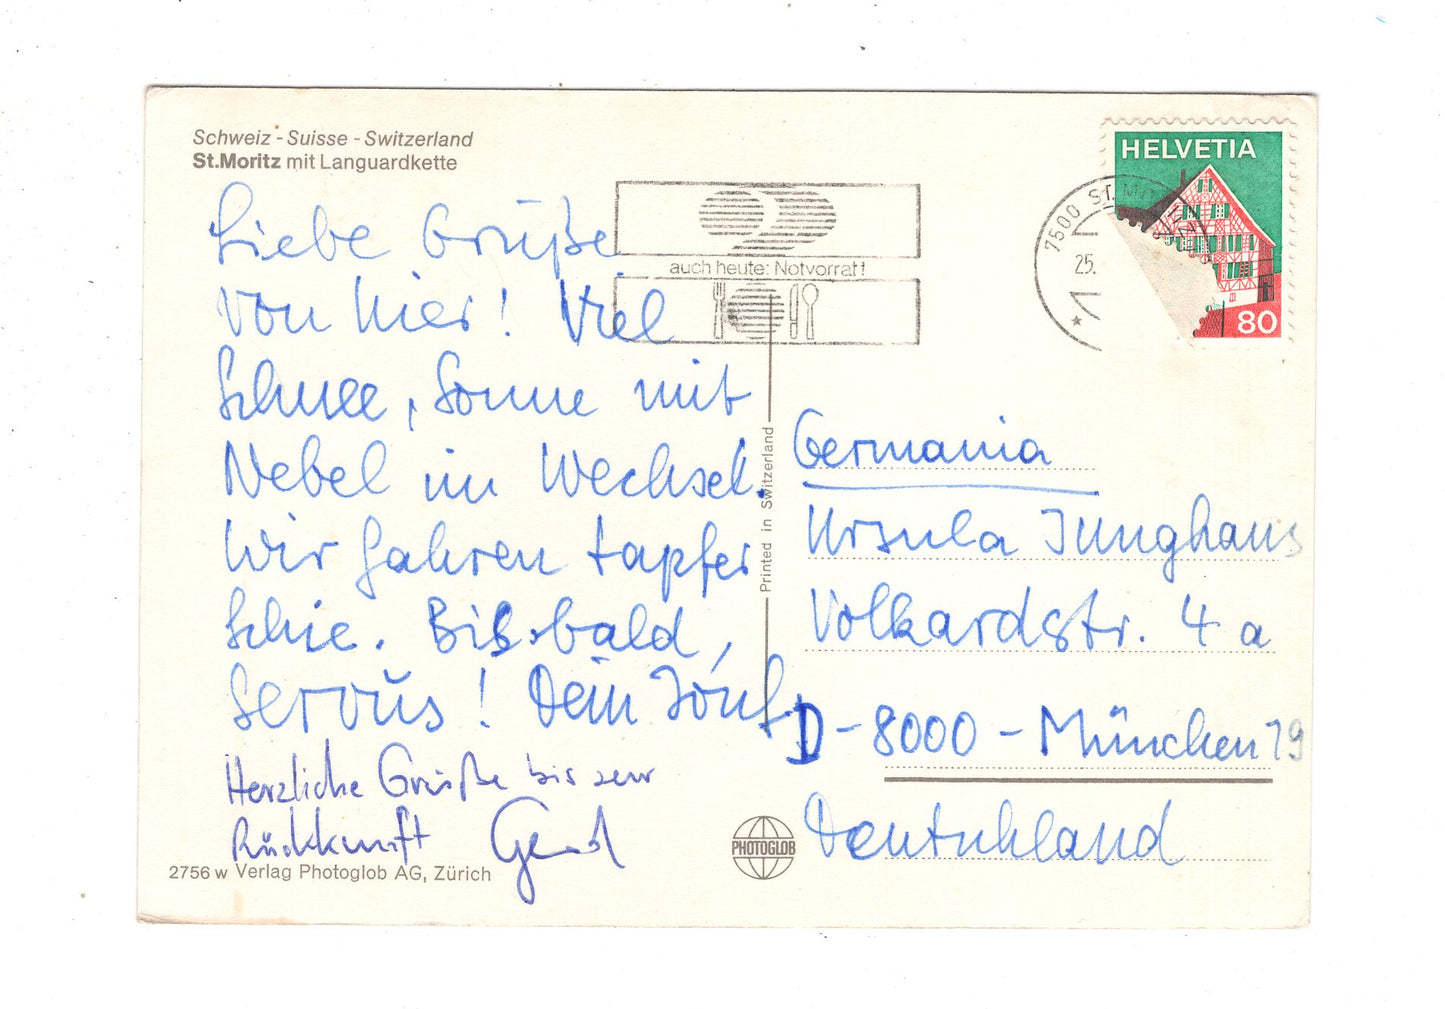 Schweiz - Suisse - Switzerland
St.Moritz mit Languardkette
HELVETIA
80
7500 ST. MORITZ
25.
auch heute: Notvorrat!
Liebe Grüße
von hier! Viel
Schnee, Sonne mit
Nebel im Wechsel.
Wir fahren tapfer
Schie. Bis bald,
Servus! Dein
Herzliche Grüße bis zur
Rückkunft Gerd
2756 w Verlag Photoglob AG, Zürich
Printed in Switzerland
PHOTOGLOB
Germania
Ursula Junghans
Volkardstr. 4 a
D-8000 - München 19
Deutschland